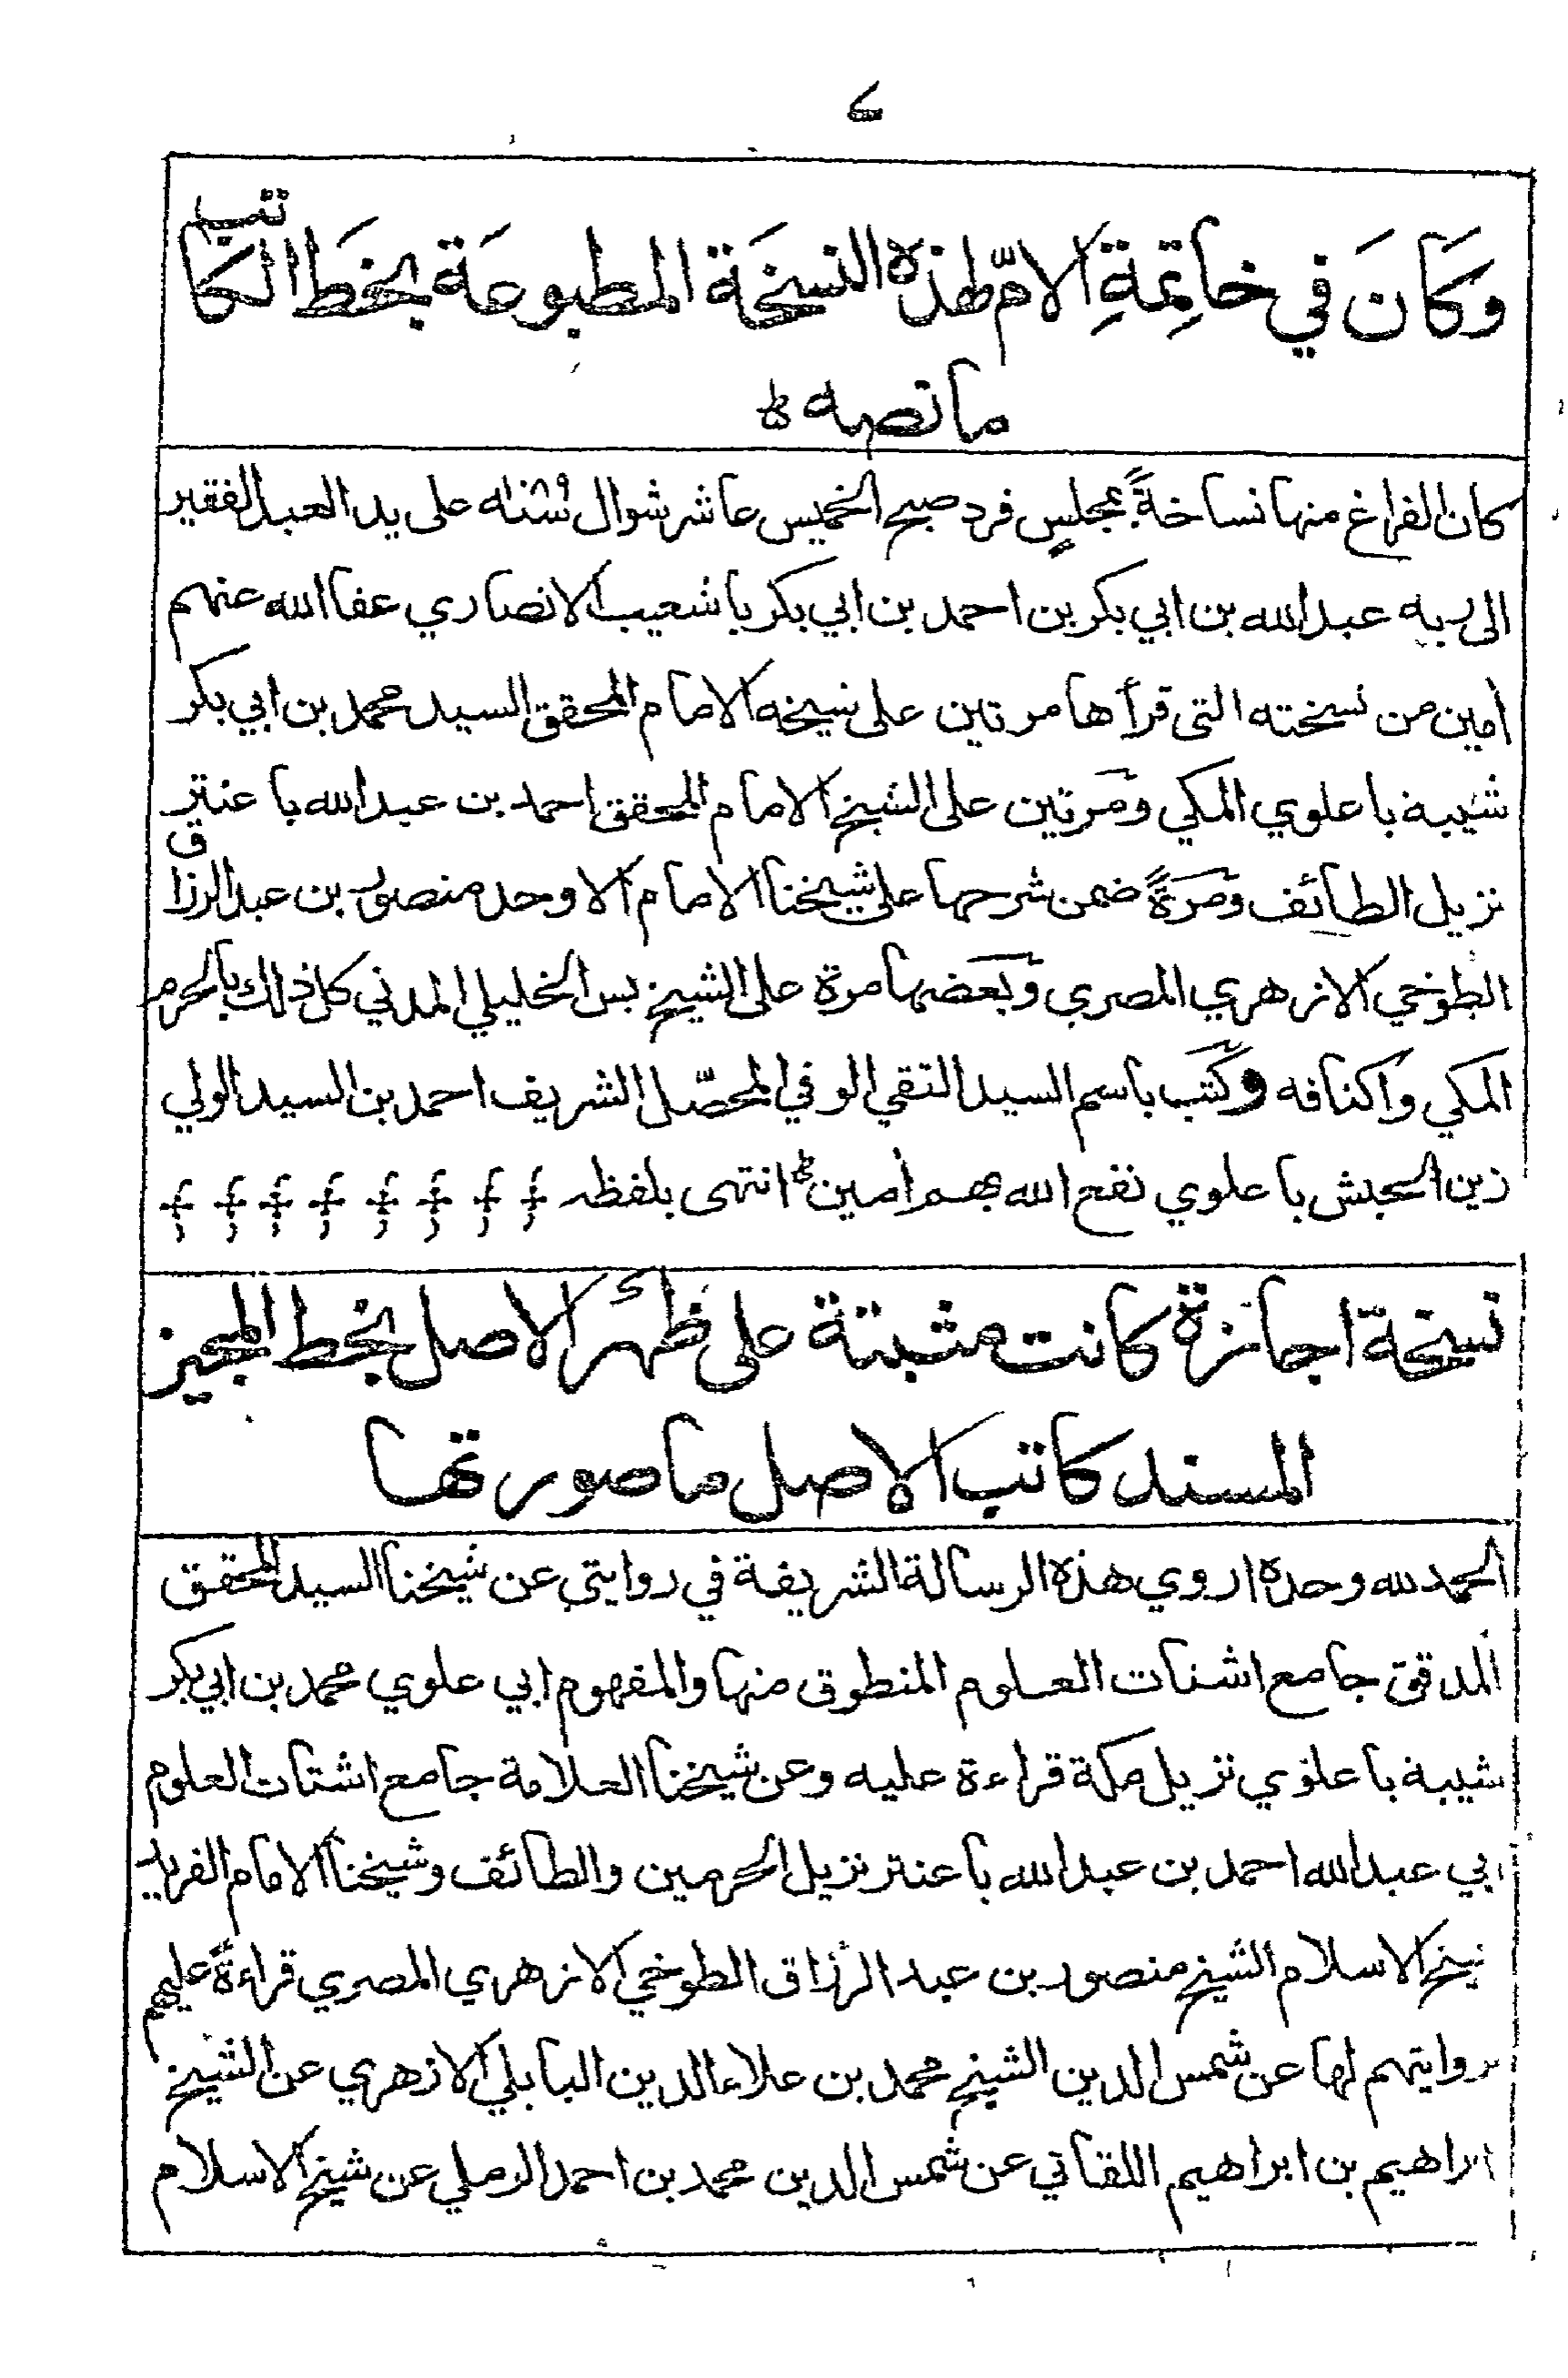 وَكَانَ في خاتِمةِ الامّ لهذه النسخَة المطبوعَة بخَط الكاتب
ما نصه
كان الفراغ منها نساخةً بمجلسٍ فرد صبح الخميس عاشر شوال على يد العبد الفقير
الى ربه عبد الله بن ابي بكر بن احمد بن ابي بكر با شعيب الانصاري عفا الله عنهم
امين من نسخته التى قرأها مرتين على شيخه الامام المحقق السيد محمد بن ابي بكر
شيبه با علوي المكي ومرتين على الشيخ الامام المحقق احمد بن عبد الله با عنتر
نزيل الطائف ومرةً ضمن شرحها على شيخنا الامام الاوحد منصور بن عبد الرزاق
الطوخي الازهري المصري وبعضها مرة على الشيخ يس الخليلي المدني كل ذلك بالحرم
المكي واكنافه وكتب باسم السيد التقي الوفي المحصّل الشريف احمد بن السيد الولي
زين الجبش با علوي نفع الله بهم امين انتهى بلفظه
نسخة اجازة كانت مثبتة على ظهر الاصل بخط المجيز
المسند كاتب الاصل ما صورتها
الحمد لله وحده اروي هذه الرسالة الشريفة في روايتي عن شيخنا السيد المحقق
المدقق جامع اشتات العلوم المنطوق منها والمفهوم ابي علوي محمد بن ابي بكر
شيبة با علوي نزيل مكة قراءة عليه وعن شيخنا العلامة جامع اشتات العلوم
ابي عبد الله احمد بن عبد الله با عنتر نزيل الحرمين والطائف وشيخنا الامام الفريد
شيخ الاسلام الشيخ منصور بن عبد الرزاق الطوخي الازهري المصري قراءةً عليهم
بروايتهم لها عن شمس الدين الشيخ محمد بن علاء الدين البابلي الازهري عن الشيخ
ابراهيم بن ابراهيم اللقاني عن شمس الدين محمد بن احمد الرملي عن شيخ الاسلام